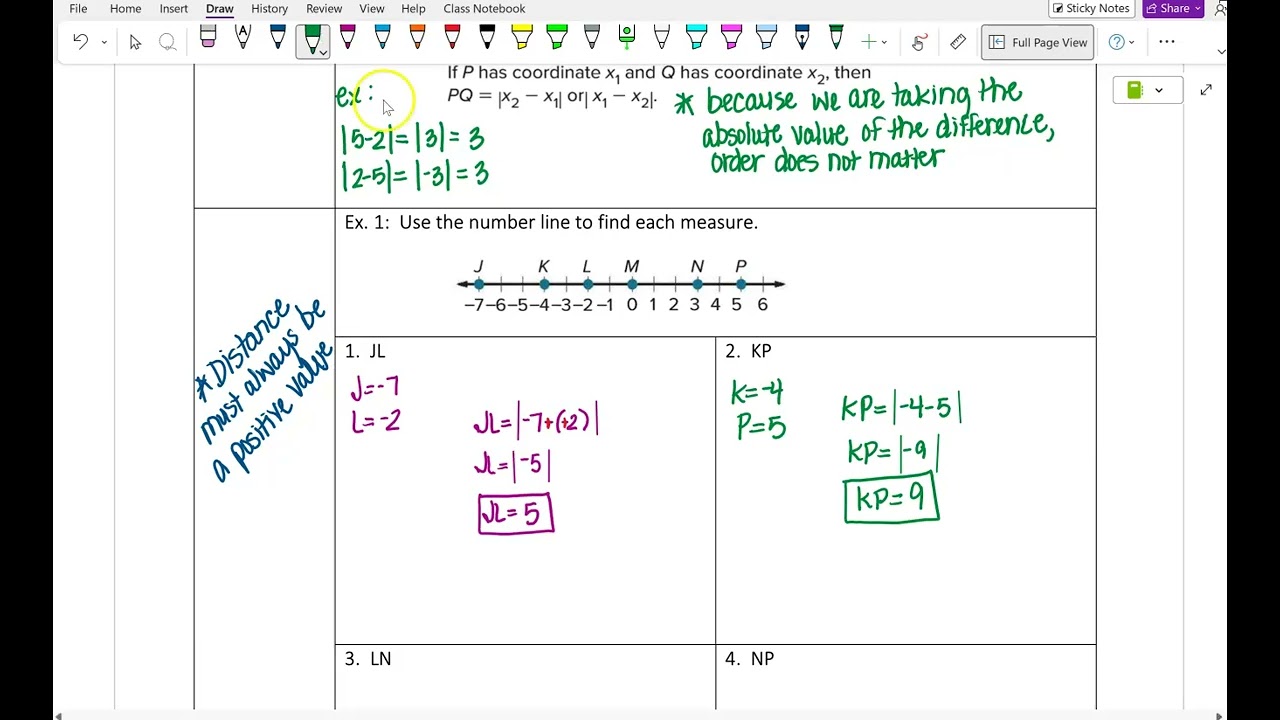 File Home Insert Draw History Review View Help Class Notebook Sticky Notes Share
Full Page View
If P has coordinate x₁ and Q has coordinate x₂, then
ex:
PQ = |x₂ − x₁| or |x₁ − x₂|.
|5-2|=|3|= 3
|2-5|=|-3|=3
* because we are taking the
absolute value of the difference,
order does not matter
Ex. 1: Use the number line to find each measure.
J K L M N P
−7 −6 −5 −4 −3 −2 −1 0 1 2 3 4 5 6
* Distance
must always be
a positive value
1. JL
J=-7
L=-2
JL=|-7+(+2)|
JL=|-5|
JL= 5
2. KP
K=-4
P=5
KP=|-4-5|
KP=|-9|
KP=9
3. LN
4. NP